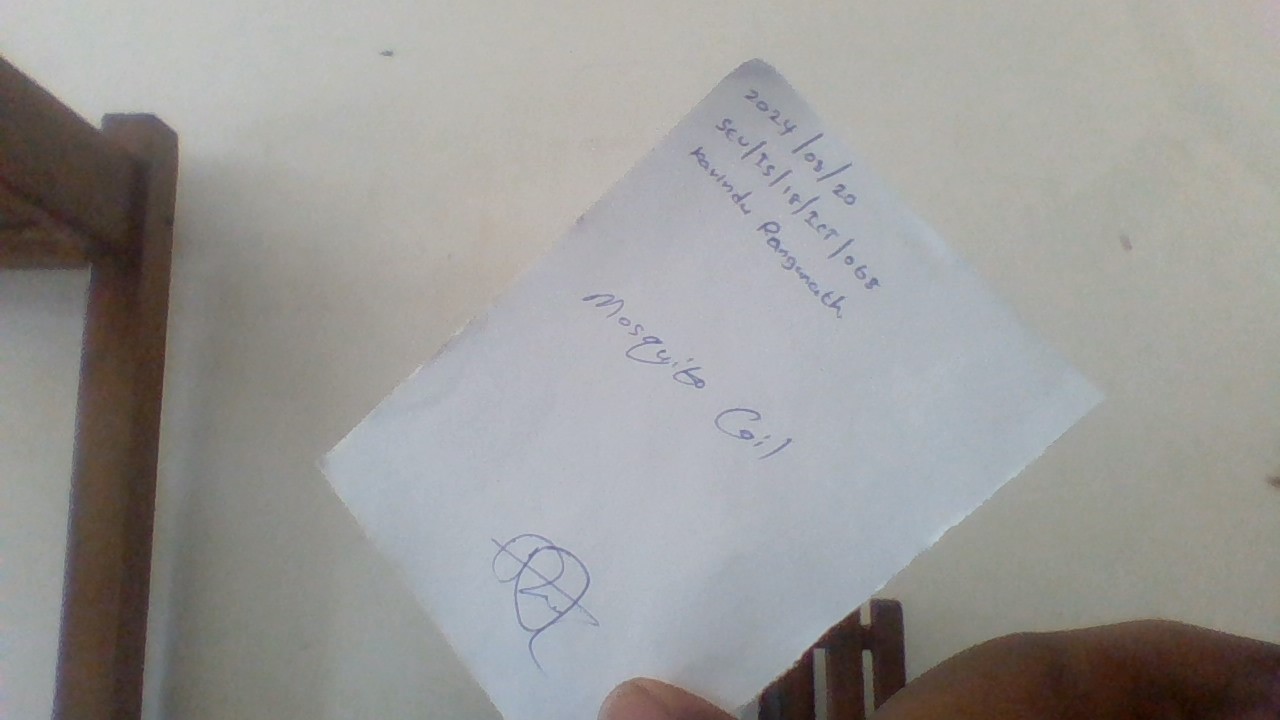 2024/03/20
SEU/IS/18/ICT/068
Kavindu Ranganath
Mosquito Coil